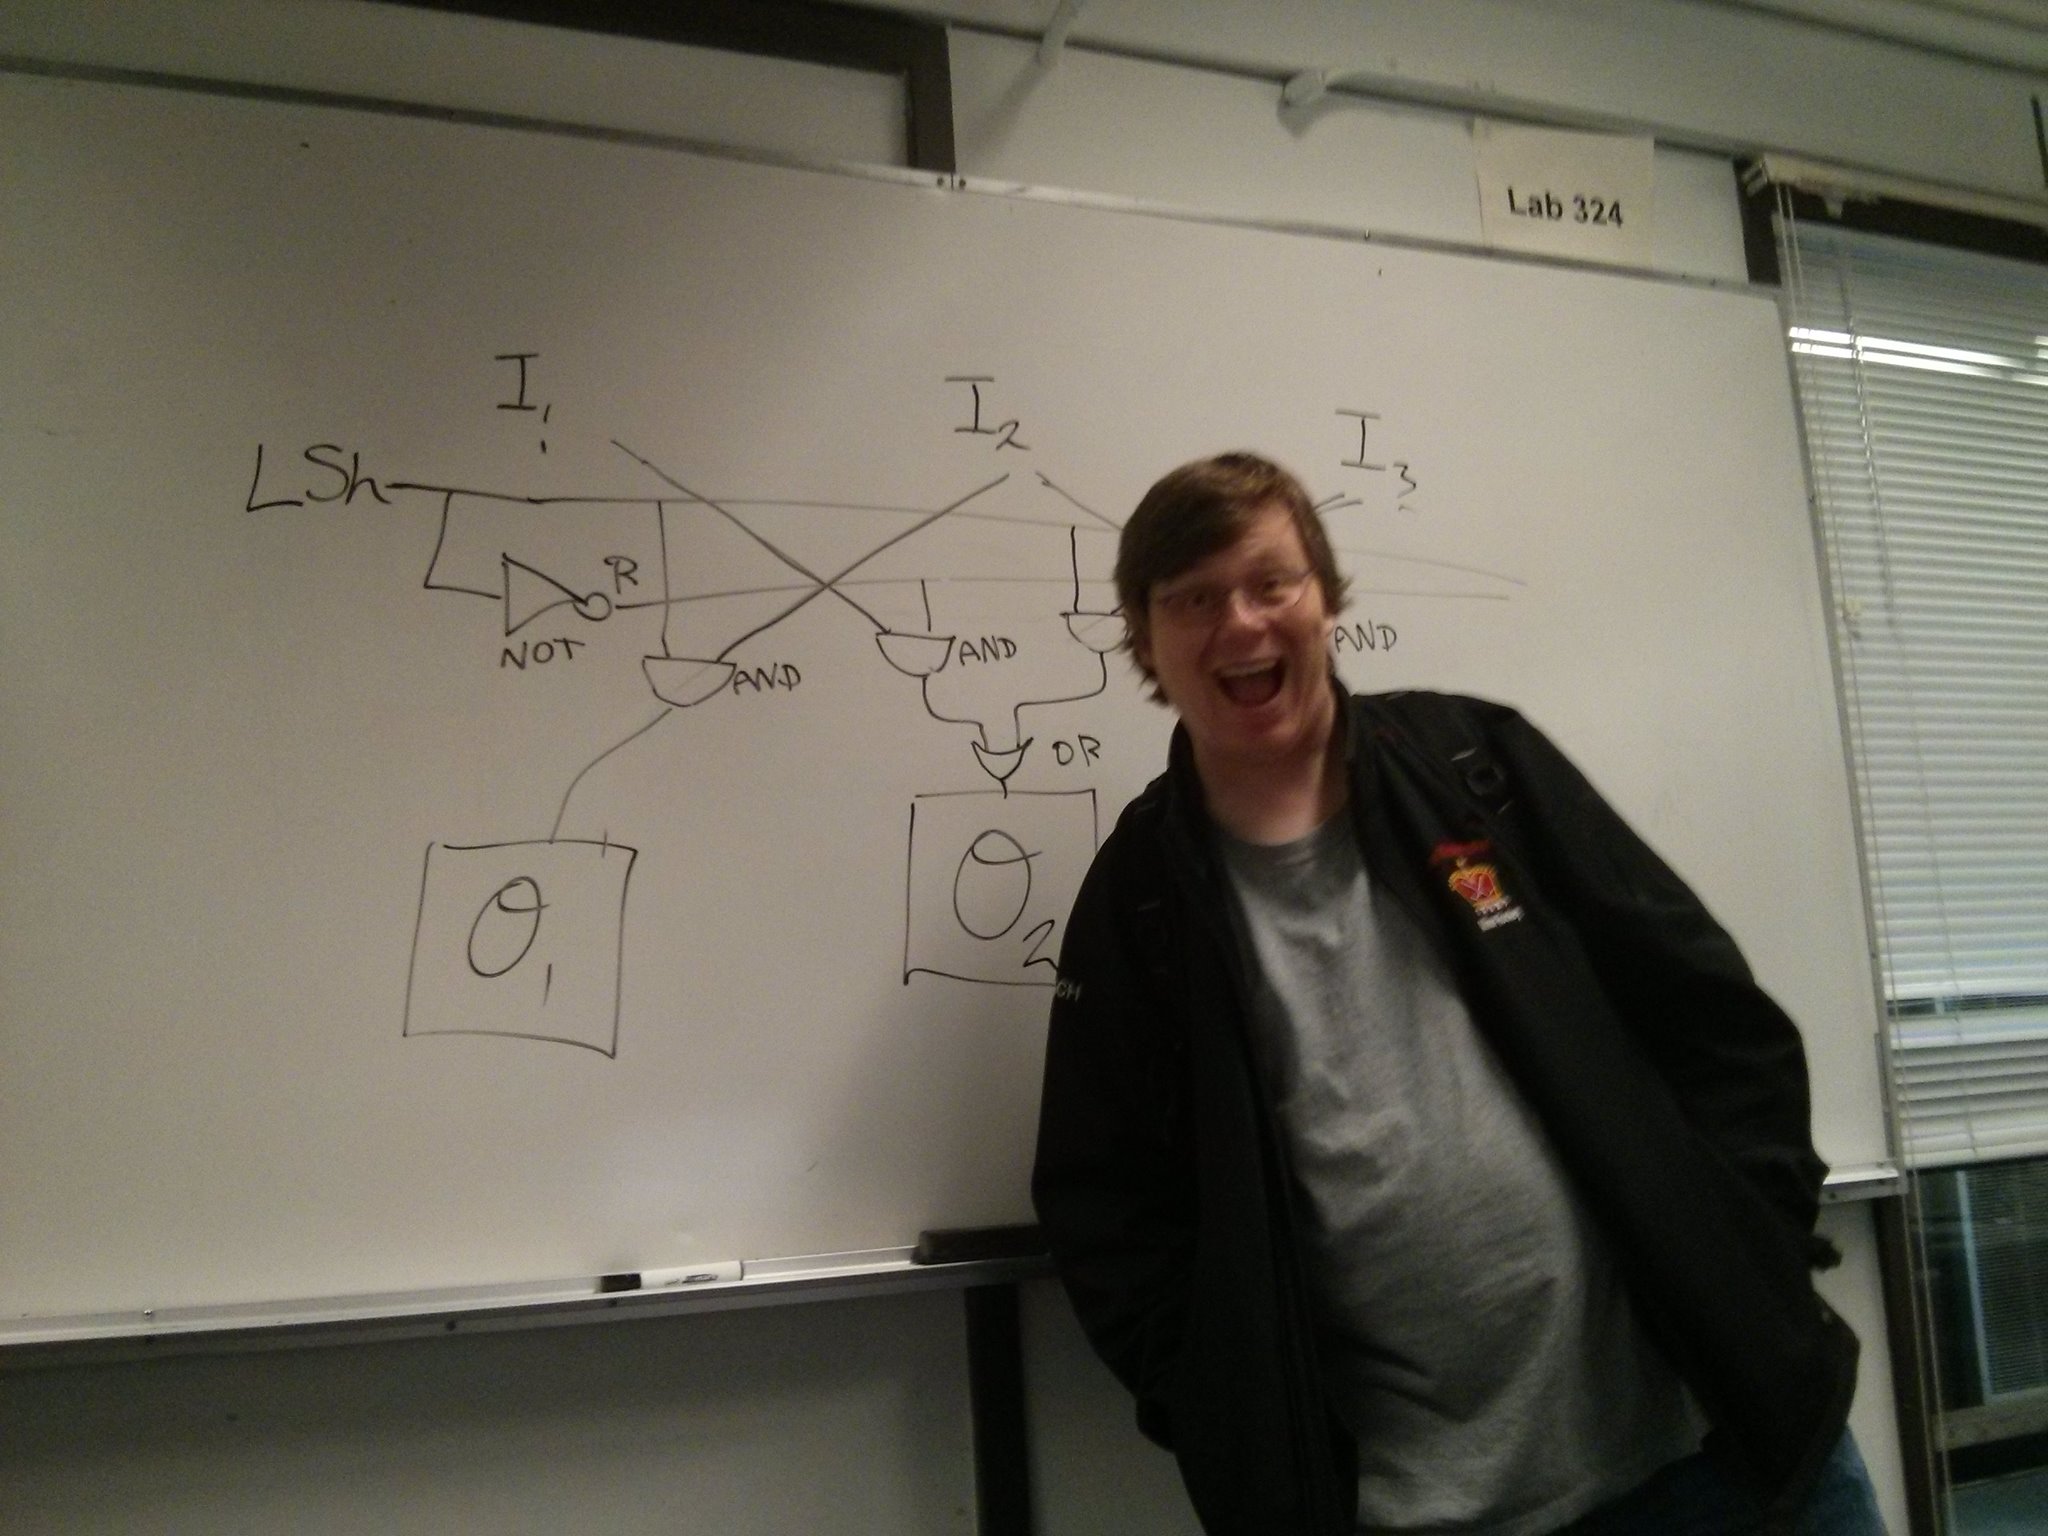 Lab 324
I1
I2
I3
LSh
R
NOT
AND
AND
AND
OR
O1
O2